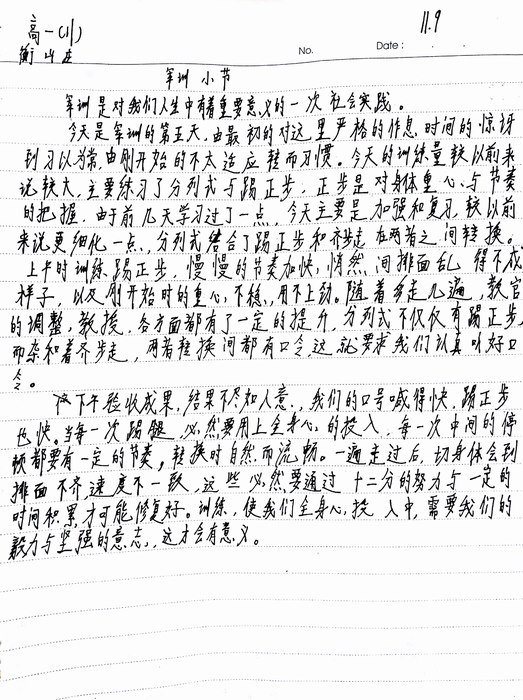 11.9
高一(11)
No.
Date:
军训小节
军训是对我们人生中有着重要意义的一次社会实践。
今天是军训的第五天,由最初的对这里严格的作息时间的惊讶
到习以为常,由刚开始的不太适应转而习惯。今天的训练量较以前来
说较大,主要练习了分列式与踢正步,正步是对身体重心与节奏
的把握,由于前几天学习过了一点,今天主要是加强和复习,较以前
来说更细化一点,分列式结合了踢正步和齐步走在两者之间转换。
上午时训练踢正步,慢慢的节奏加快,悄然间排面乱得不成
样子,以及刚开始时的重心不稳,用不上劲。随着多走几遍,教官
的调整,教授,各方面都有了一定的提升,分列式不仅仅有踢正步,
而杂和着齐步走,两者转换间都有口令,这就要求我们认真叫好口
令。
下午验收成果,结果不尽如人意,我们的口号喊得快,踢正步
也快。当每一次踢腿必然要用上全身心的投入,每一次中间的停
顿都要有一定的节奏,转换时自然而流畅。一遍走过后,切身体会到
排面不齐,速度不一致,这些必然要通过十二分的努力与一定的
时间积累才可能修复好。训练,使我们全身心投入中,需要我们的
毅力与坚强的意志,这才会有意义。